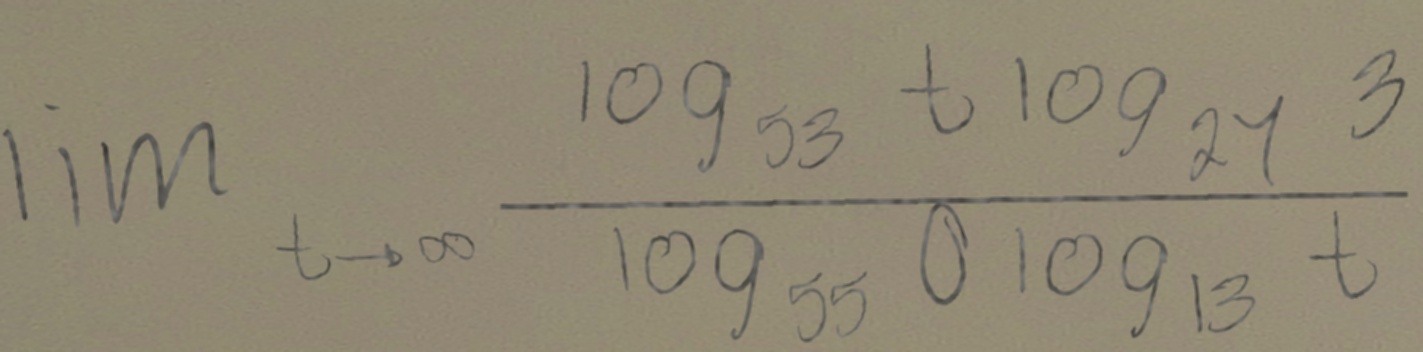 lim_{t→∞} \frac{log_{53} t log_{24} 3}{log_{55} 0 log_{13} t}